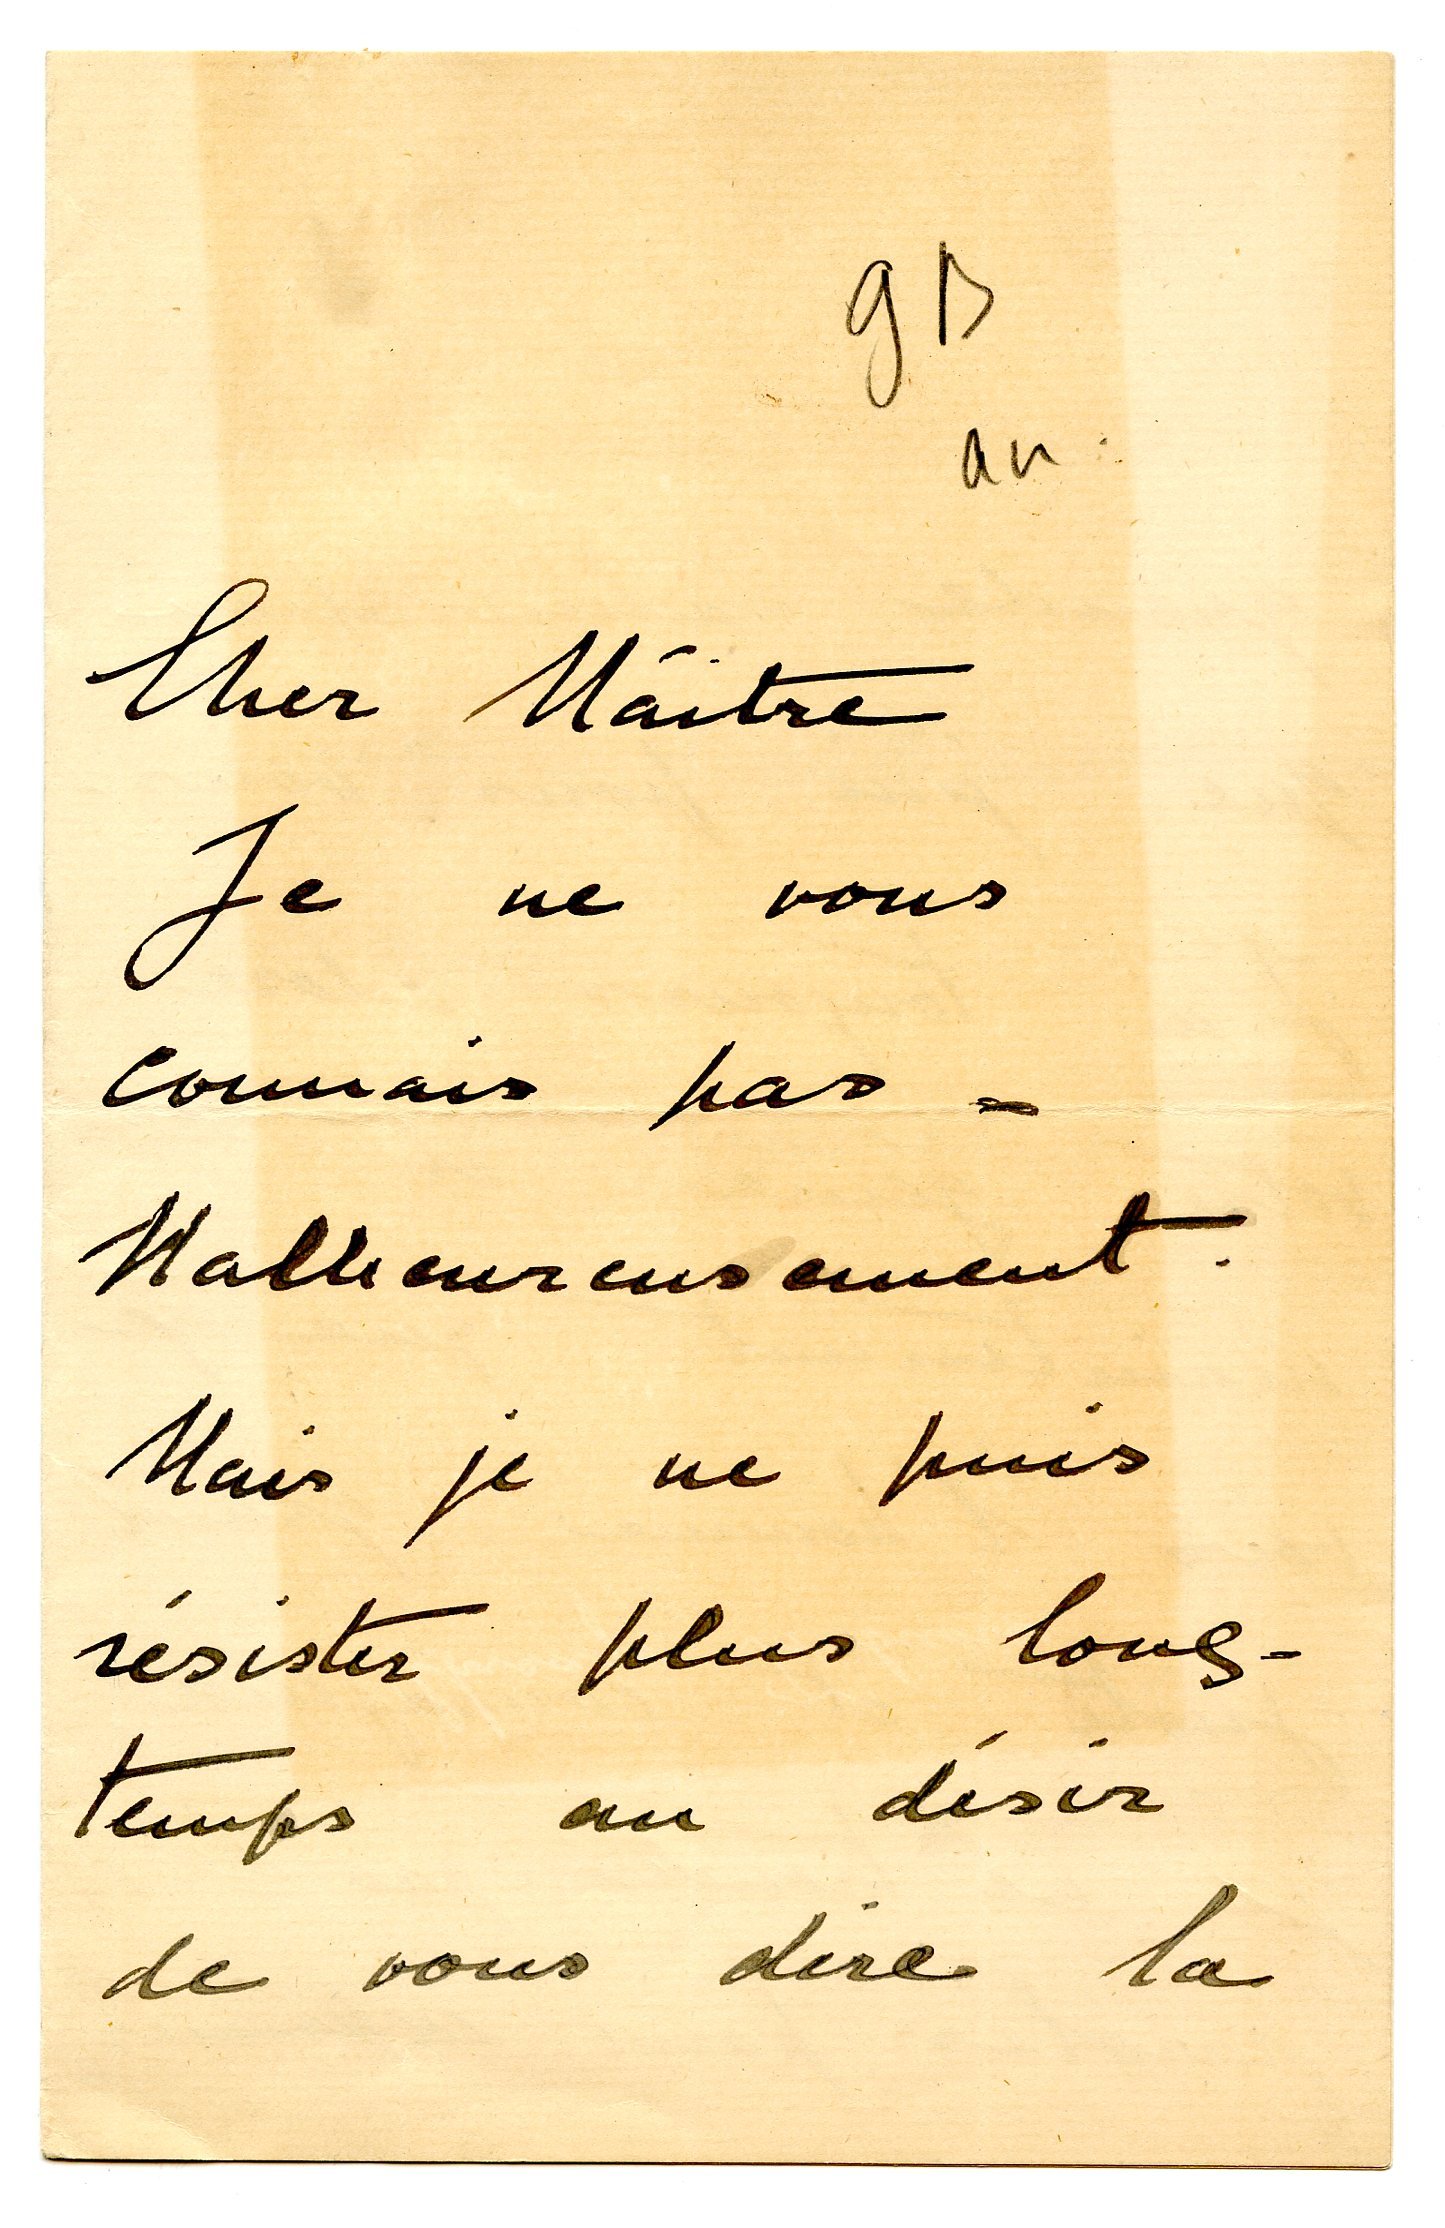 gB
an.
Cher Maître
Je ne vous
connais pas -
Malheureusement.
Mais je ne puis
résister plus long-
temps au désir
de vous dire la